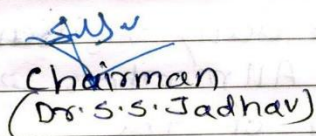 Chairman
(Dr. S. S. Jadhav)